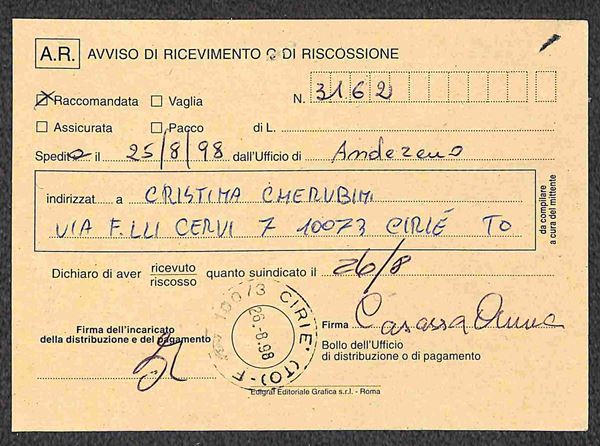 A.R. AVVISO DI RICEVIMENTO O DI RISCOSSIONE
Raccomandata Vaglia N. 3162
Assicurata Pacco di L.
Spedito il 25/8/98 dall'Ufficio di Andezeno
indirizzat a CRISTINA CHERUBINI
VIA F.LLI CERVI 7 10073 CIRIÉ TO
da compilare
a cura del mittente
Dichiaro di aver ricevuto quanto suindicato il 26/8
riscosso
10073 CIRIE' (TO) - F
26.-8.98
Firma dell'incaricato
della distribuzione e del pagamento
Firma Casassa Anna
Bollo dell'Ufficio
di distribuzione o di pagamento
Edigraf Editoriale Grafica s.r.l. - Roma